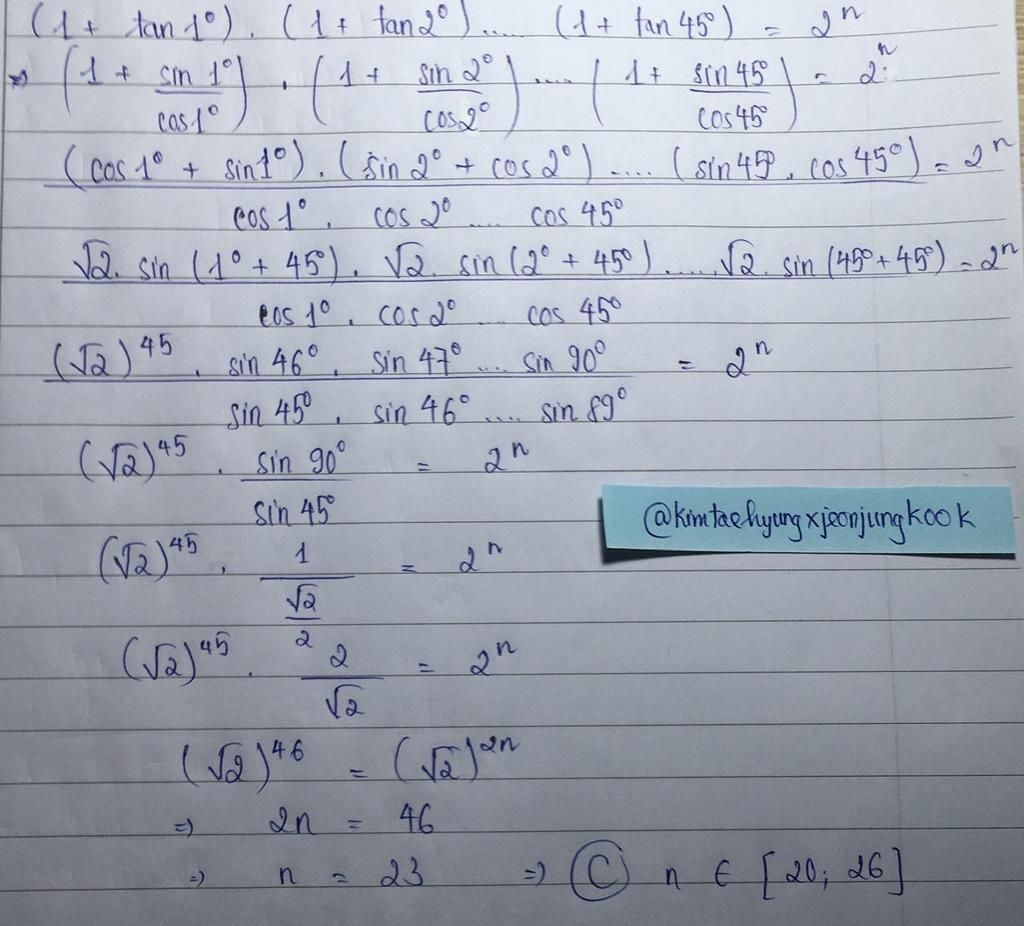 (1 + tan 1°) . (1 + tan 2°) ..... (1 + tan 45°) = 2ⁿ
=> (1 + sin 1°/cos 1°) . (1 + sin 2°/cos 2°) .... (1 + sin 45°/cos 45°) = 2ⁿ
(cos 1° + sin 1°) . (sin 2° + cos 2°) .... (sin 45° . cos 45°) = 2ⁿ
cos 1° . cos 2° .... cos 45°
√2 . sin (1° + 45°) . √2 . sin (2° + 45°) ..... √2 . sin (45° + 45°) = 2ⁿ
cos 1° . cos 2° ... cos 45°
(√2)⁴⁵ . sin 46° . sin 47° ... sin 90° = 2ⁿ
sin 45° . sin 46° .... sin 89°
(√2)⁴⁵ . sin 90° = 2ⁿ
sin 45°
@kimtaehyungxjeonjungkook
(√2)⁴⁵ . 1 = 2ⁿ
√2
2
(√2)⁴⁵ . 2 = 2ⁿ
√2
(√2)⁴⁶ = (√2)²ⁿ
=> 2n = 46
=> n = 23 => C n ∈ [20; 26]